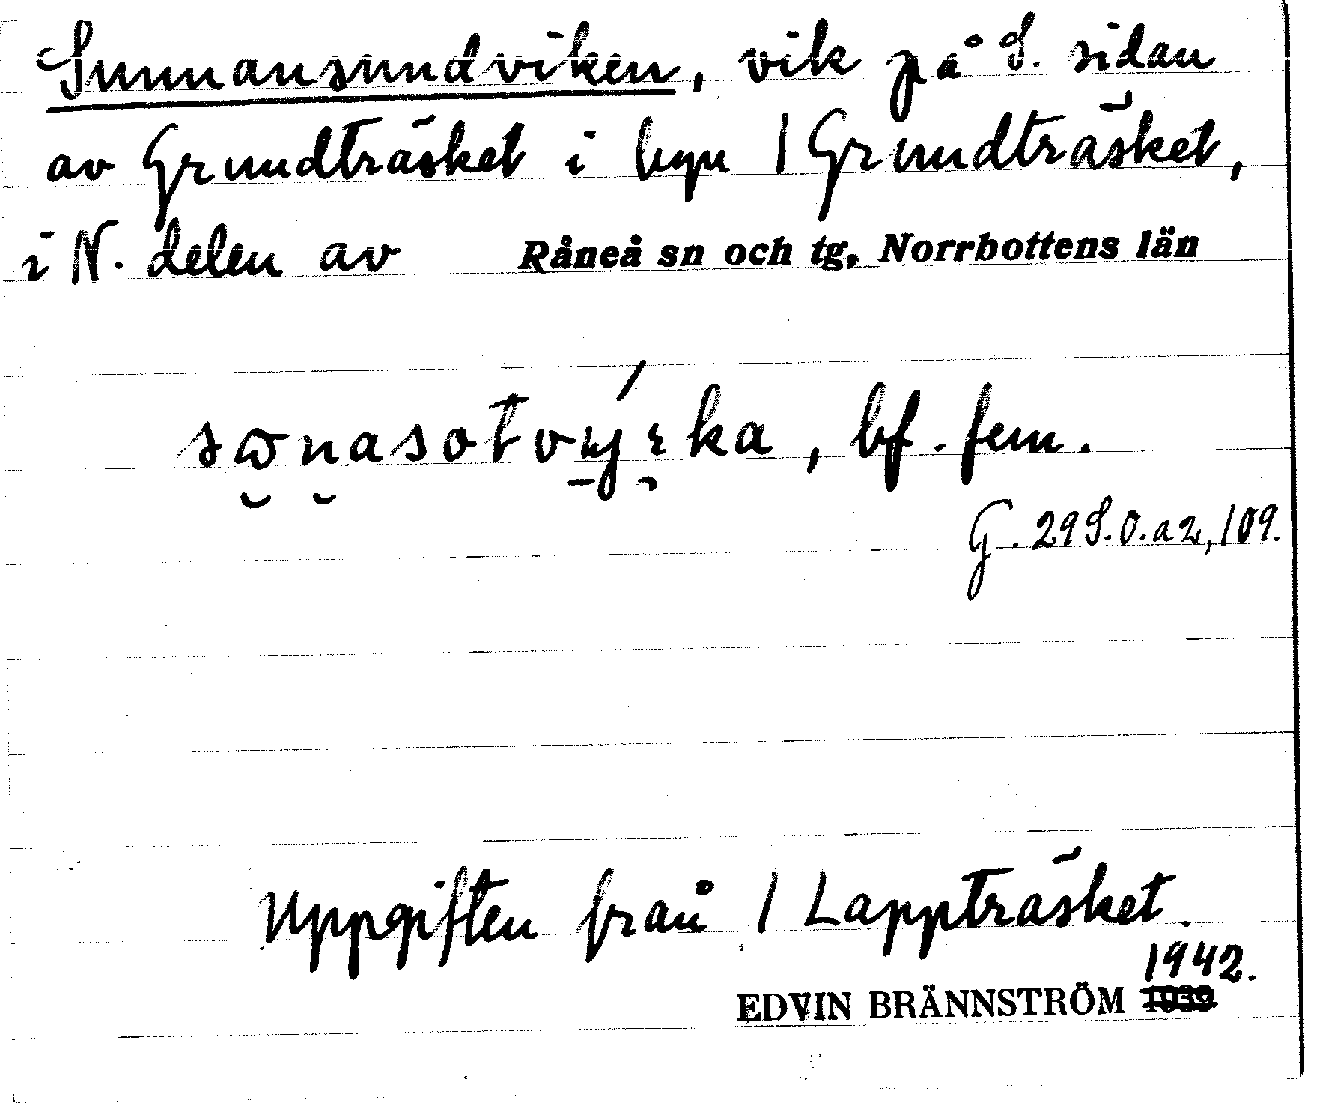 Sunnansundviken, vik på S. sidan
av Grundträsket i byn 1 Grundträsket,
i N. delen av Råneå sn och tg, Norrbottens län
bf. fem.
G. 29 S.O. a 2, 109.
Uppgiften från 1 Lappträsket.
1942.
EDVIN BRÄNNSTRÖM 1939